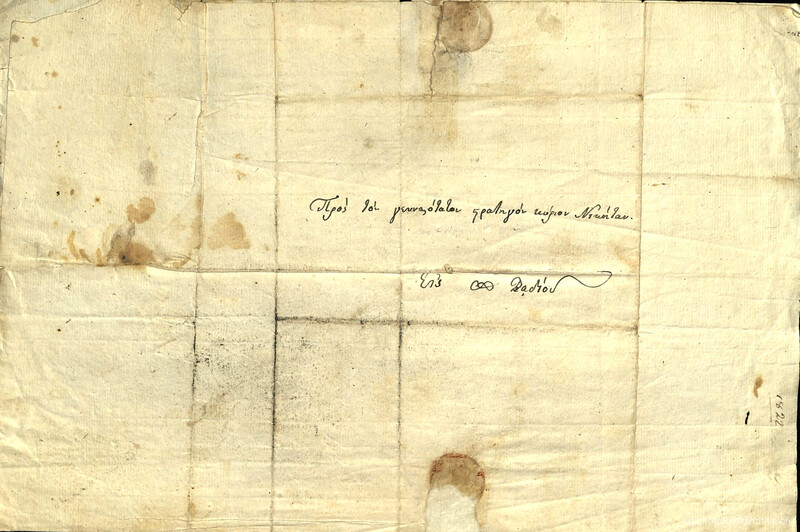 Πρὸς τὸν γενναιότατον στρατηγὸν κύριον Νικήταν.
Εἰς
1822